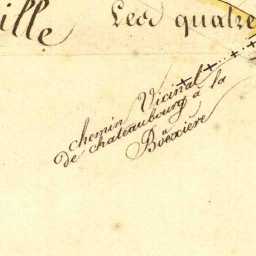 ille
Les quatre
chemin Vicinal
de chateaubourg à la
Bouëxière